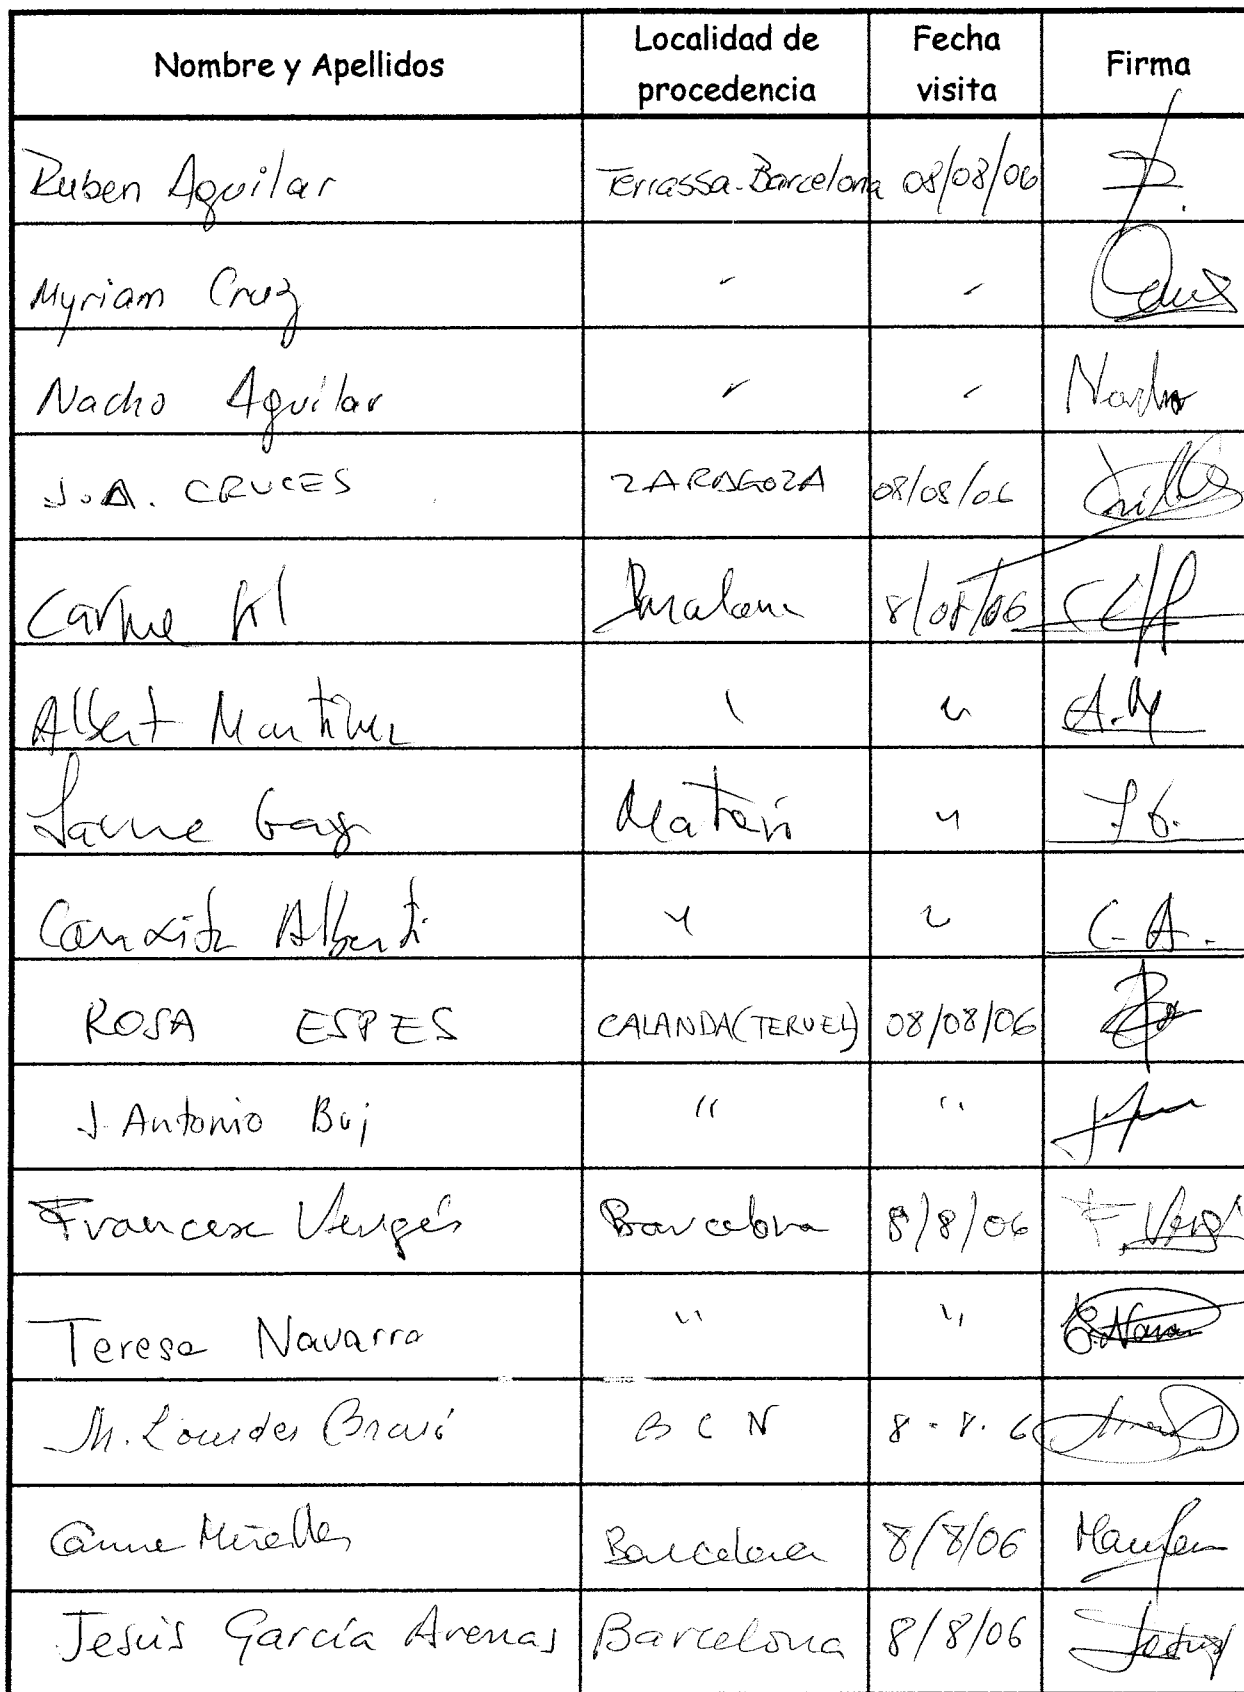 Nombre y Apellidos Localidad de procedencia Fecha visita Firma
Ruben Aguilar Terrassa-Barcelona 08/08/06
Myriam Cruz - -
Nacho Aguilar - - Nacho
J.A. CRUCES ZARAGOZA 08/08/06
Carme 8/08/06
Albert Martinez \ "
Jaume Gay Mataró " J G.
Conxita Alberti " " C. A.
ROSA ESPES CALANDA (TERUEL) 08/08/06
J. Antonio Buj " "
Francesc Vergés Barcelona 8/8/06 F. Vergé
Teresa Navarro " " T. Navarro
M. Lourdes BCN 8-8-6
Carme Miralles Barcelona 8/8/06
Jesús García Arenas Barcelona 8/8/06 Jesús